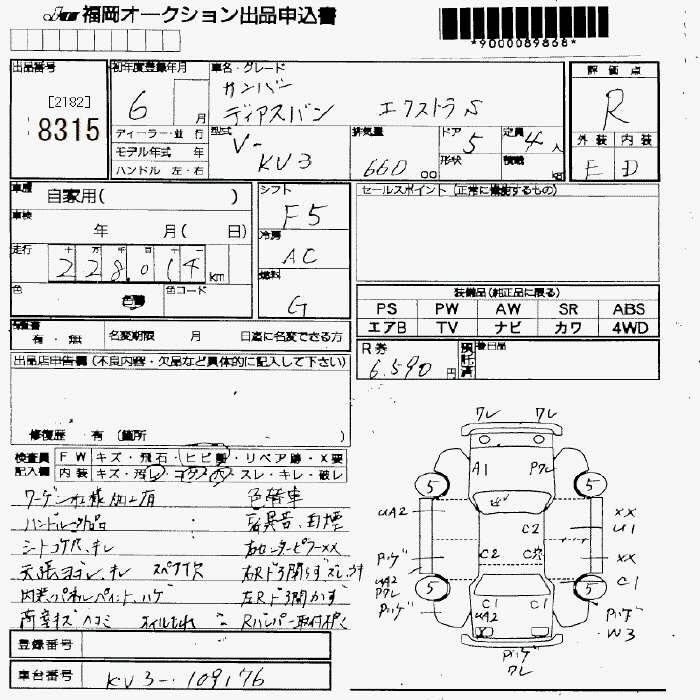 福岡オークション出品申込書
*9000089868*
出品番号
[2182]
8315
初年度登録年月
6 月
ディーラー・並 行
モデル年式 年
ハンドル 左・右
車名・グレード
サンバー
ディアスバン エクストラS
型式
V-
KV3
排気量
660 cc
ドア
5
形状
定員
4 人
積載 kg
評 価 点
R
外 装 内 装
E D
車歴
自家用( )
車検
年 月( 日)
走行
十 万 千 百 十 一
228014 km
色
色替
色コード
シフト
F5
冷房
AC
燃料
G
セールスポイント (正常に機能するもの)
装備品(純正品に限る)
PS PW AW SR ABS
エアB TV ナビ カワ 4WD
保証書
有・無
名変期限 月 日迄に名変できる方
R券
6.590 円
預託済
後日品
出品店申告欄 (不良内容・欠品など具体的に記入して下さい)
修復歴 有 (箇所 )
検査員
記入欄
FW キズ・飛石・ヒビ割・リペア跡・X要
内装 キズ・汚レ・コゲ・穴・スレ・キレ・破レ
ワーゲン仕様加工有
色替車
ハンドル
シートコゲ穴、キレ
右センターピラーXX
天張ヨゴレ、キレ スペア欠
右Rドア開らず
内装パネルペイント、ハゲ
左Rドア開かず
荷室キズ ヘコミ オイルもれ
Rバンパー取付
登録番号
車台番号
KV3-109176
ワレ ワレ
A1 Pワレ
5 5
UA2
XX
U1
C2
C2 C穴
Pハゲ
XX
UA2
Pワレ
C1
5 5
Pハゲ
C1 C1
UA2
Pハゲ
W3
Pハゲ
ワレ